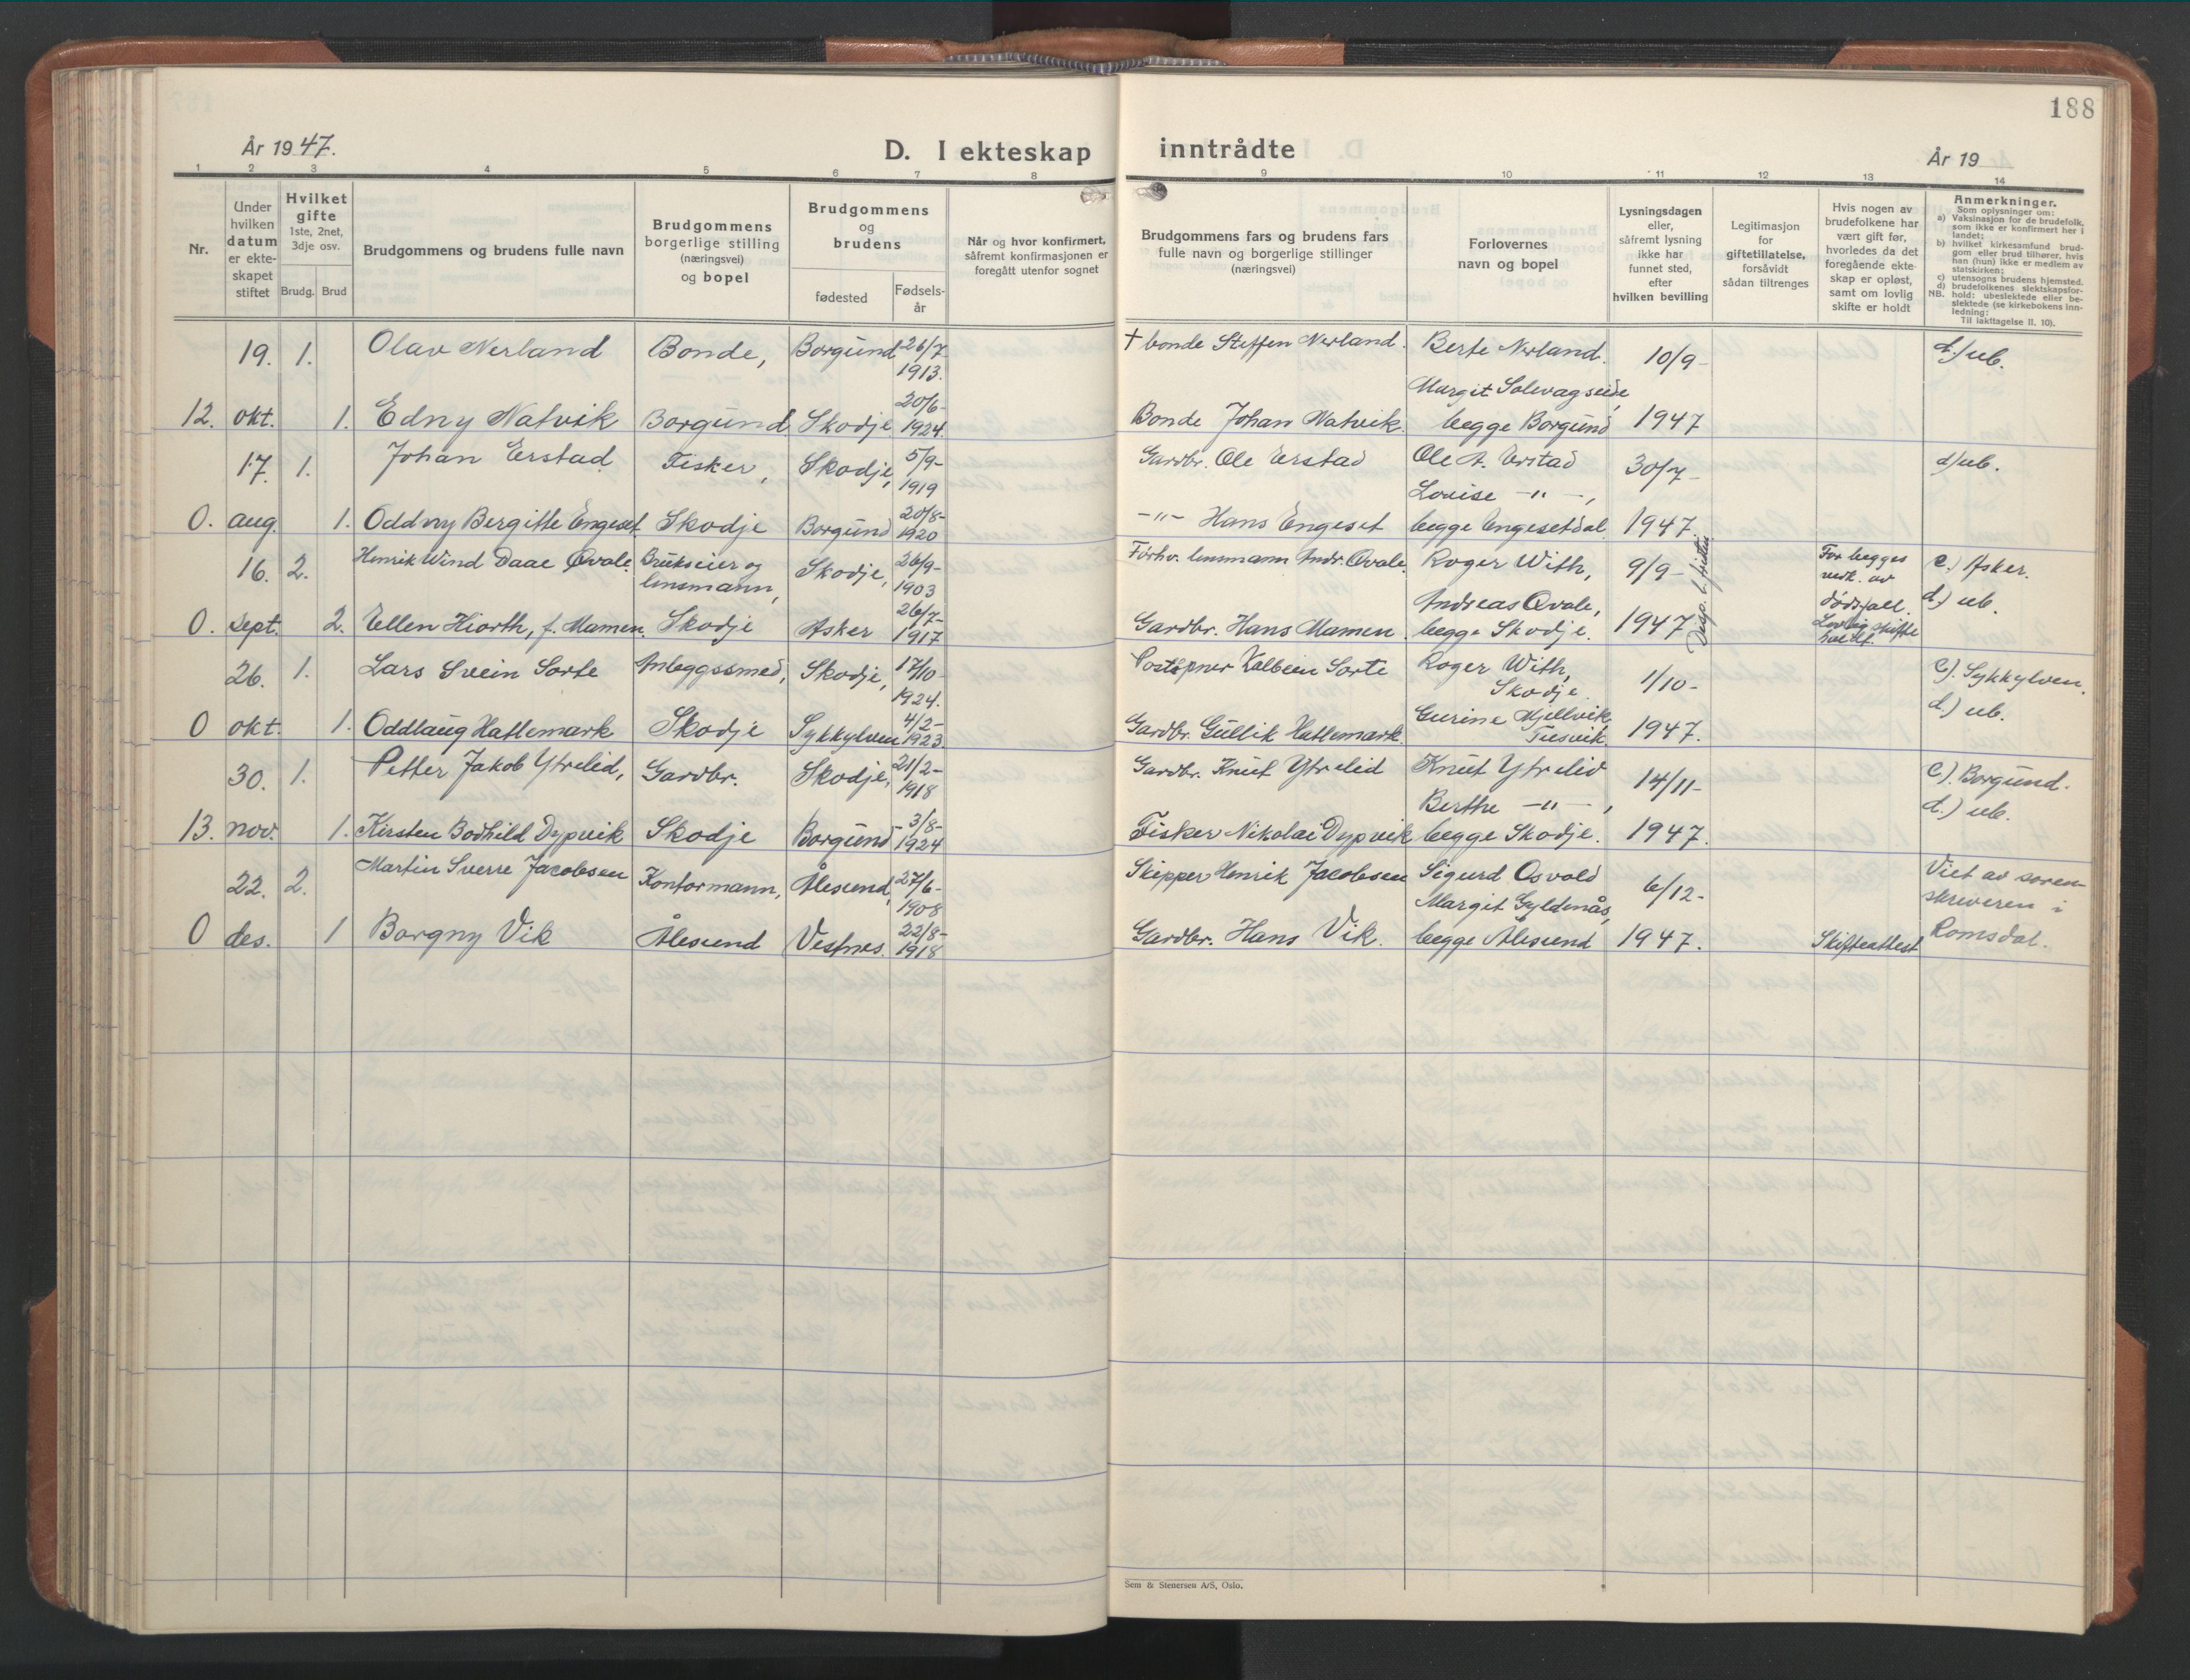 188
År 1947.
D. I ekteskap inntrådte
År 19
1 2 3 4 5 6 7 8 9 10 11 12 13 14
Nr.
Under
hvilken
datum
er ekte-
skapet
stiftet
Hvilket
gifte
1ste, 2net,
3dje osv.
Brudg. Brud
Brudgommens og brudens fulle navn
Brudgommens
borgerlige stilling
(næringsvei)
og bopel
Brudgommens
og
brudens
fødested
Fødsels-
år
Når og hvor konfirmert,
såfremt konfirmasjonen er
foregått utenfor sognet
Brudgommens fars og brudens fars
fulle navn og borgerlige stillinger
(næringsvei)
Forlovernes
navn og bopel
Lysningsdagen
eller,
såfremt lysning
ikke har
funnet sted,
efter
hvilken bevilling
Legitimasjon
for
giftetillatelse,
forsåvidt
sådan tiltrenges
Hvis nogen av
brudefolkene har
vært gift før,
hvorledes da det
foregående ekte-
skap er opløst,
samt om lovlig
skifte er holdt
Anmerkninger.
Som oplysninger om:
a) Vaksinasjon for de brudefolk,
som ikke er konfirmert her i
landet;
b) hvilket kirkesamfund brud-
gom eller brud tilhører, hvis
han (hun) ikke er medlem av
statskirken;
c) utensogns brudens hjemsted.
d) brudefolkenes slektskapsfor-
NB. hold: ubeslektede eller be-
slektede (se kirkebokens inn-
ledning:
Til iakttagelse II. 10).
19. 1. Olav Nerland Bonde, Borgund 26/7- 1913. + bonde Steffen Nerland. Berte Nerland. 10/9- d.) ub.
Margit Solevagseide,
12. okt. 1. Edny Natvik Borgund Skodje 20/6- 1924. Bonde Johan Natvik. begge Borgund 1947
17. 1. Johan Erstad Fisker, Skodje, 5/9- 1919 Gardbr. Ole Erstad Ole A. Erstad 30/7- d/ub.
Louise -"-,
0. aug. 1. Oddny Bergitte Engeset Skodje Borgund 20/8- 1920 -"- Hans Engeset begge Engesetdal 1947.
16. 2. Henrik Wind Daae Qvale. Brukseier og lensmann, Skodje, 26/9- 1903 Forhv. lensmann Andr. Qvale. Roger With, 9/9- For begges vedk. av dødsfall. Lovlig skifte holdt. c.) Asker. d.) ub.
Andreas Qvale,
0. sept. 2. Ellen Hiorth, f. Mamen. Skodje Asker 26/7- 1917 Gardbr. Hans Mamen. begge Skodje. 1947
26. 1. Lars Svein Sorte Anleggssmed, Skodje, 17/10- 1924. Poståpner Kolbein Sorte Roger With, Skodje. 1/10- c). Sykkylven. d.) ub.
0 okt. 1. Oddlaug Hatlemark Skodje Sykkylven 4/2- 1923. Gardbr. Gullik Hatlemark. Gurine Mjellvik Tusvik. 1947.
30. 1. Petter Jakob Ytrelid, Gardbr. Skodje, 21/2- 1918 Gardbr. Knut Ytrelid Knut Ytrelid 14/11- c). Borgund. d.) ub.
Berthe -"-,
13. nov. 1. Kirsten Bodhild Dypvik Skodje Borgund 3/8- 1924 Fisker Nikolai Dypvik begge Skodje. 1947.
22. 2. Martin Sverre Jacobsen Kontormann, Ålesund, 27/6- 1908 Skipper Henrik Jacobsen Sigurd Osvold 6/12- Viet av soren-
skriveren i
Margit Gyldenås,
0 des. 1 Borgny Vik Ålesund Vestnes. 22/8- 1918 Gardbr. Hans Vik. begge Ålesund 1947. Skifteattest Romsdal.
Sem & Stenersen A/S, Oslo.